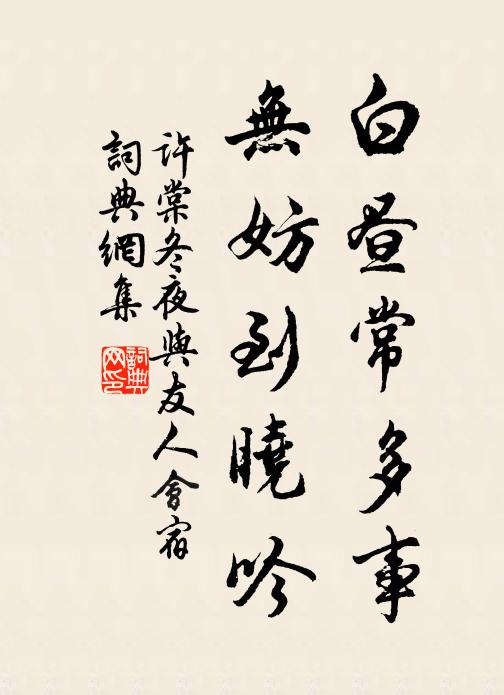 白昼常多事
無妨到曉吟
許棠冬夜與友人會宿
詞典網集
詞典网印